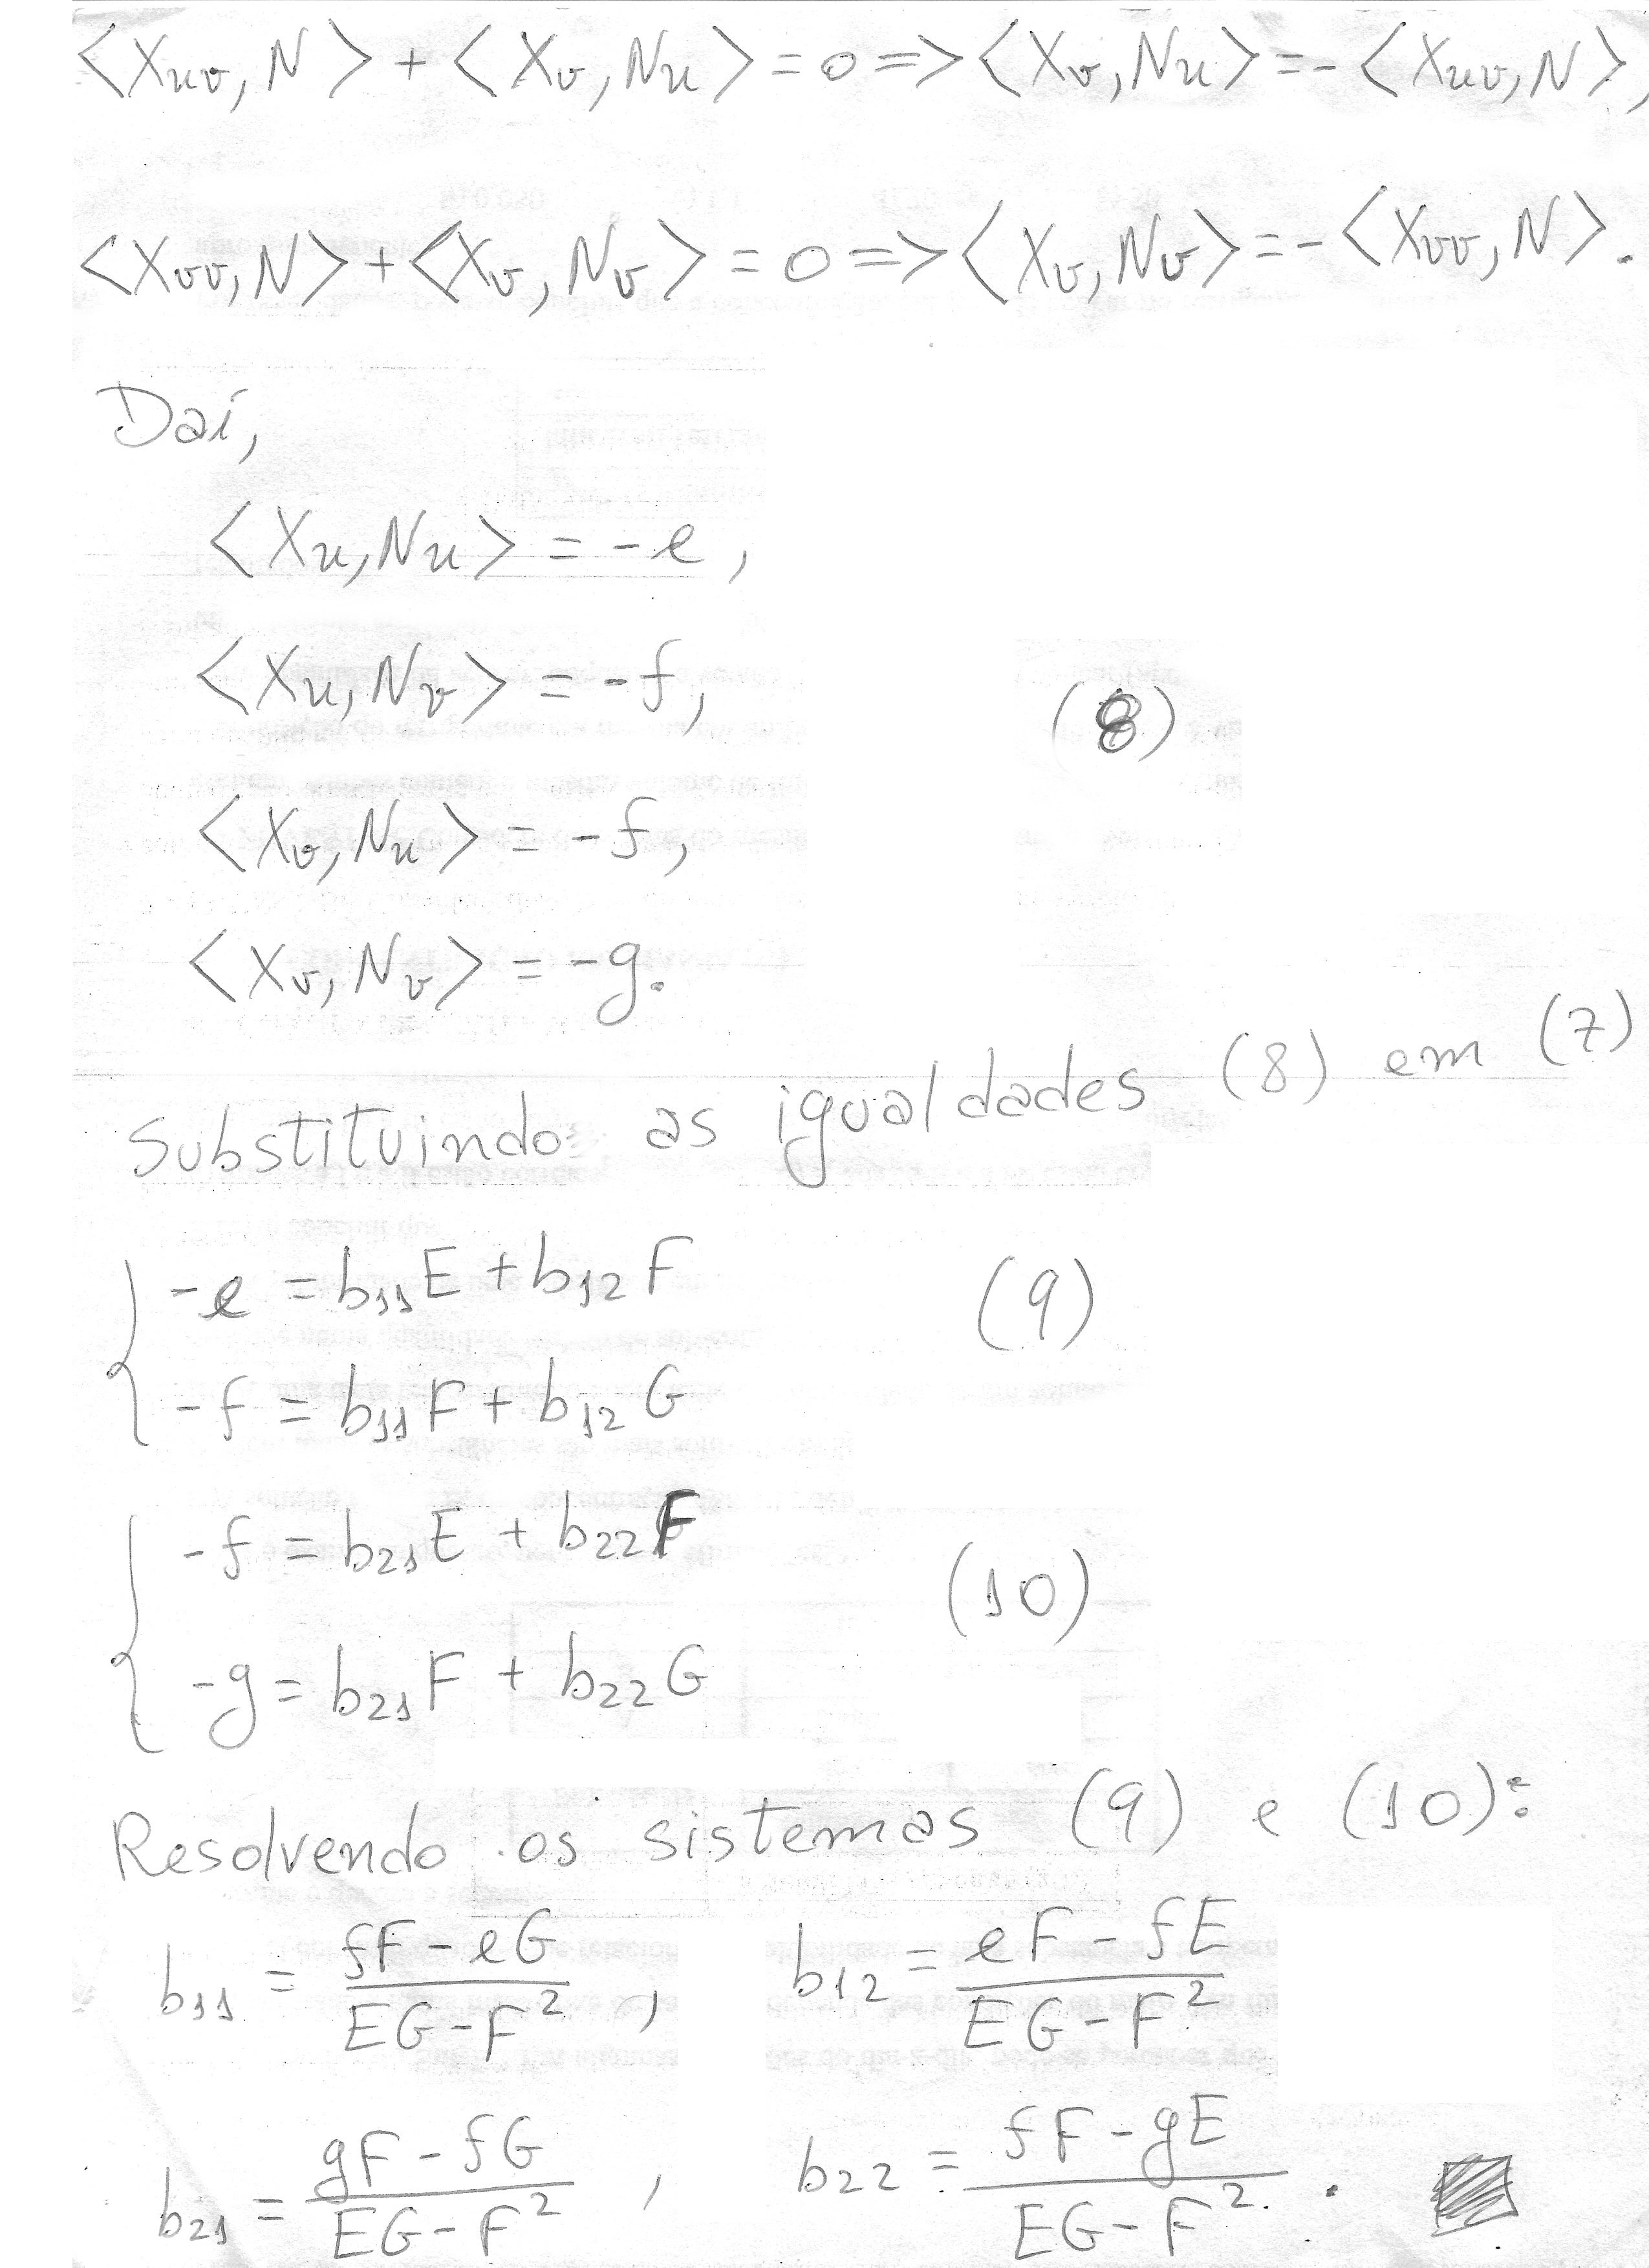 <X_{uv}, N> + <X_v, N_u> = 0 => <X_v, N_u> = - <X_{uv}, N>,
<X_{vv}, N> + <X_v, N_v> = 0 => <X_v, N_v> = - <X_{vv}, N>.
Daí,
<X_u, N_u> = -e,
<X_u, N_v> = -f,
(8)
<X_v, N_u> = -f,
<X_v, N_v> = -g.
Substituindo as igualdades (8) em (7)
-e = b_{11}E + b_{12}F (9)
-f = b_{11}F + b_{12}G
-f = b_{21}E + b_{22}F
(10)
-g = b_{21}F + b_{22}G
Resolvendo os sistemas (9) e (10):
b_{11} = \frac{fF - eG}{EG - F^2}, b_{12} = \frac{eF - fE}{EG - F^2}
b_{21} = \frac{gF - fG}{EG - F^2}, b_{22} = \frac{fF - gE}{EG - F^2}.